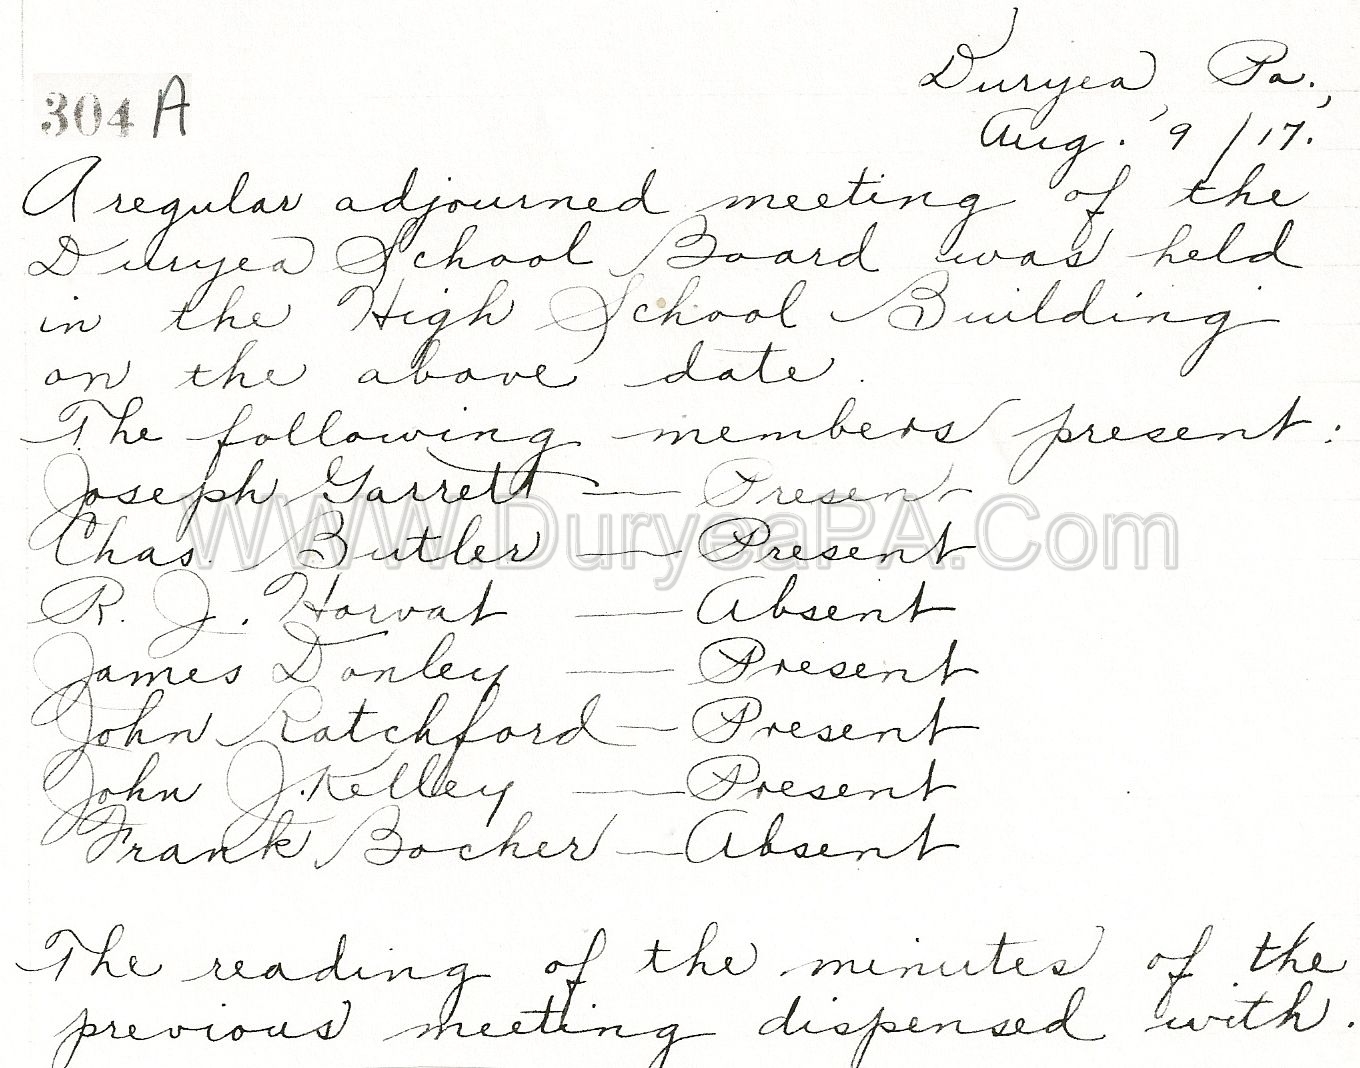 Duryea, Pa.,
304 A
Aug. 9/17.
A regular adjourned meeting of the
Duryea School Board was held
in the High School Building
on the above date.
The following members present:
Joseph Garrett — Present
WWW.DuryeaPA.Com
Chas. Butler — Present
R. J. Horvat — Absent
James Donley — Present
John Ratchford — Present
John J. Kelley — Present
Frank Bocher — Absent
The reading of the minutes of the
previous meeting dispensed with.